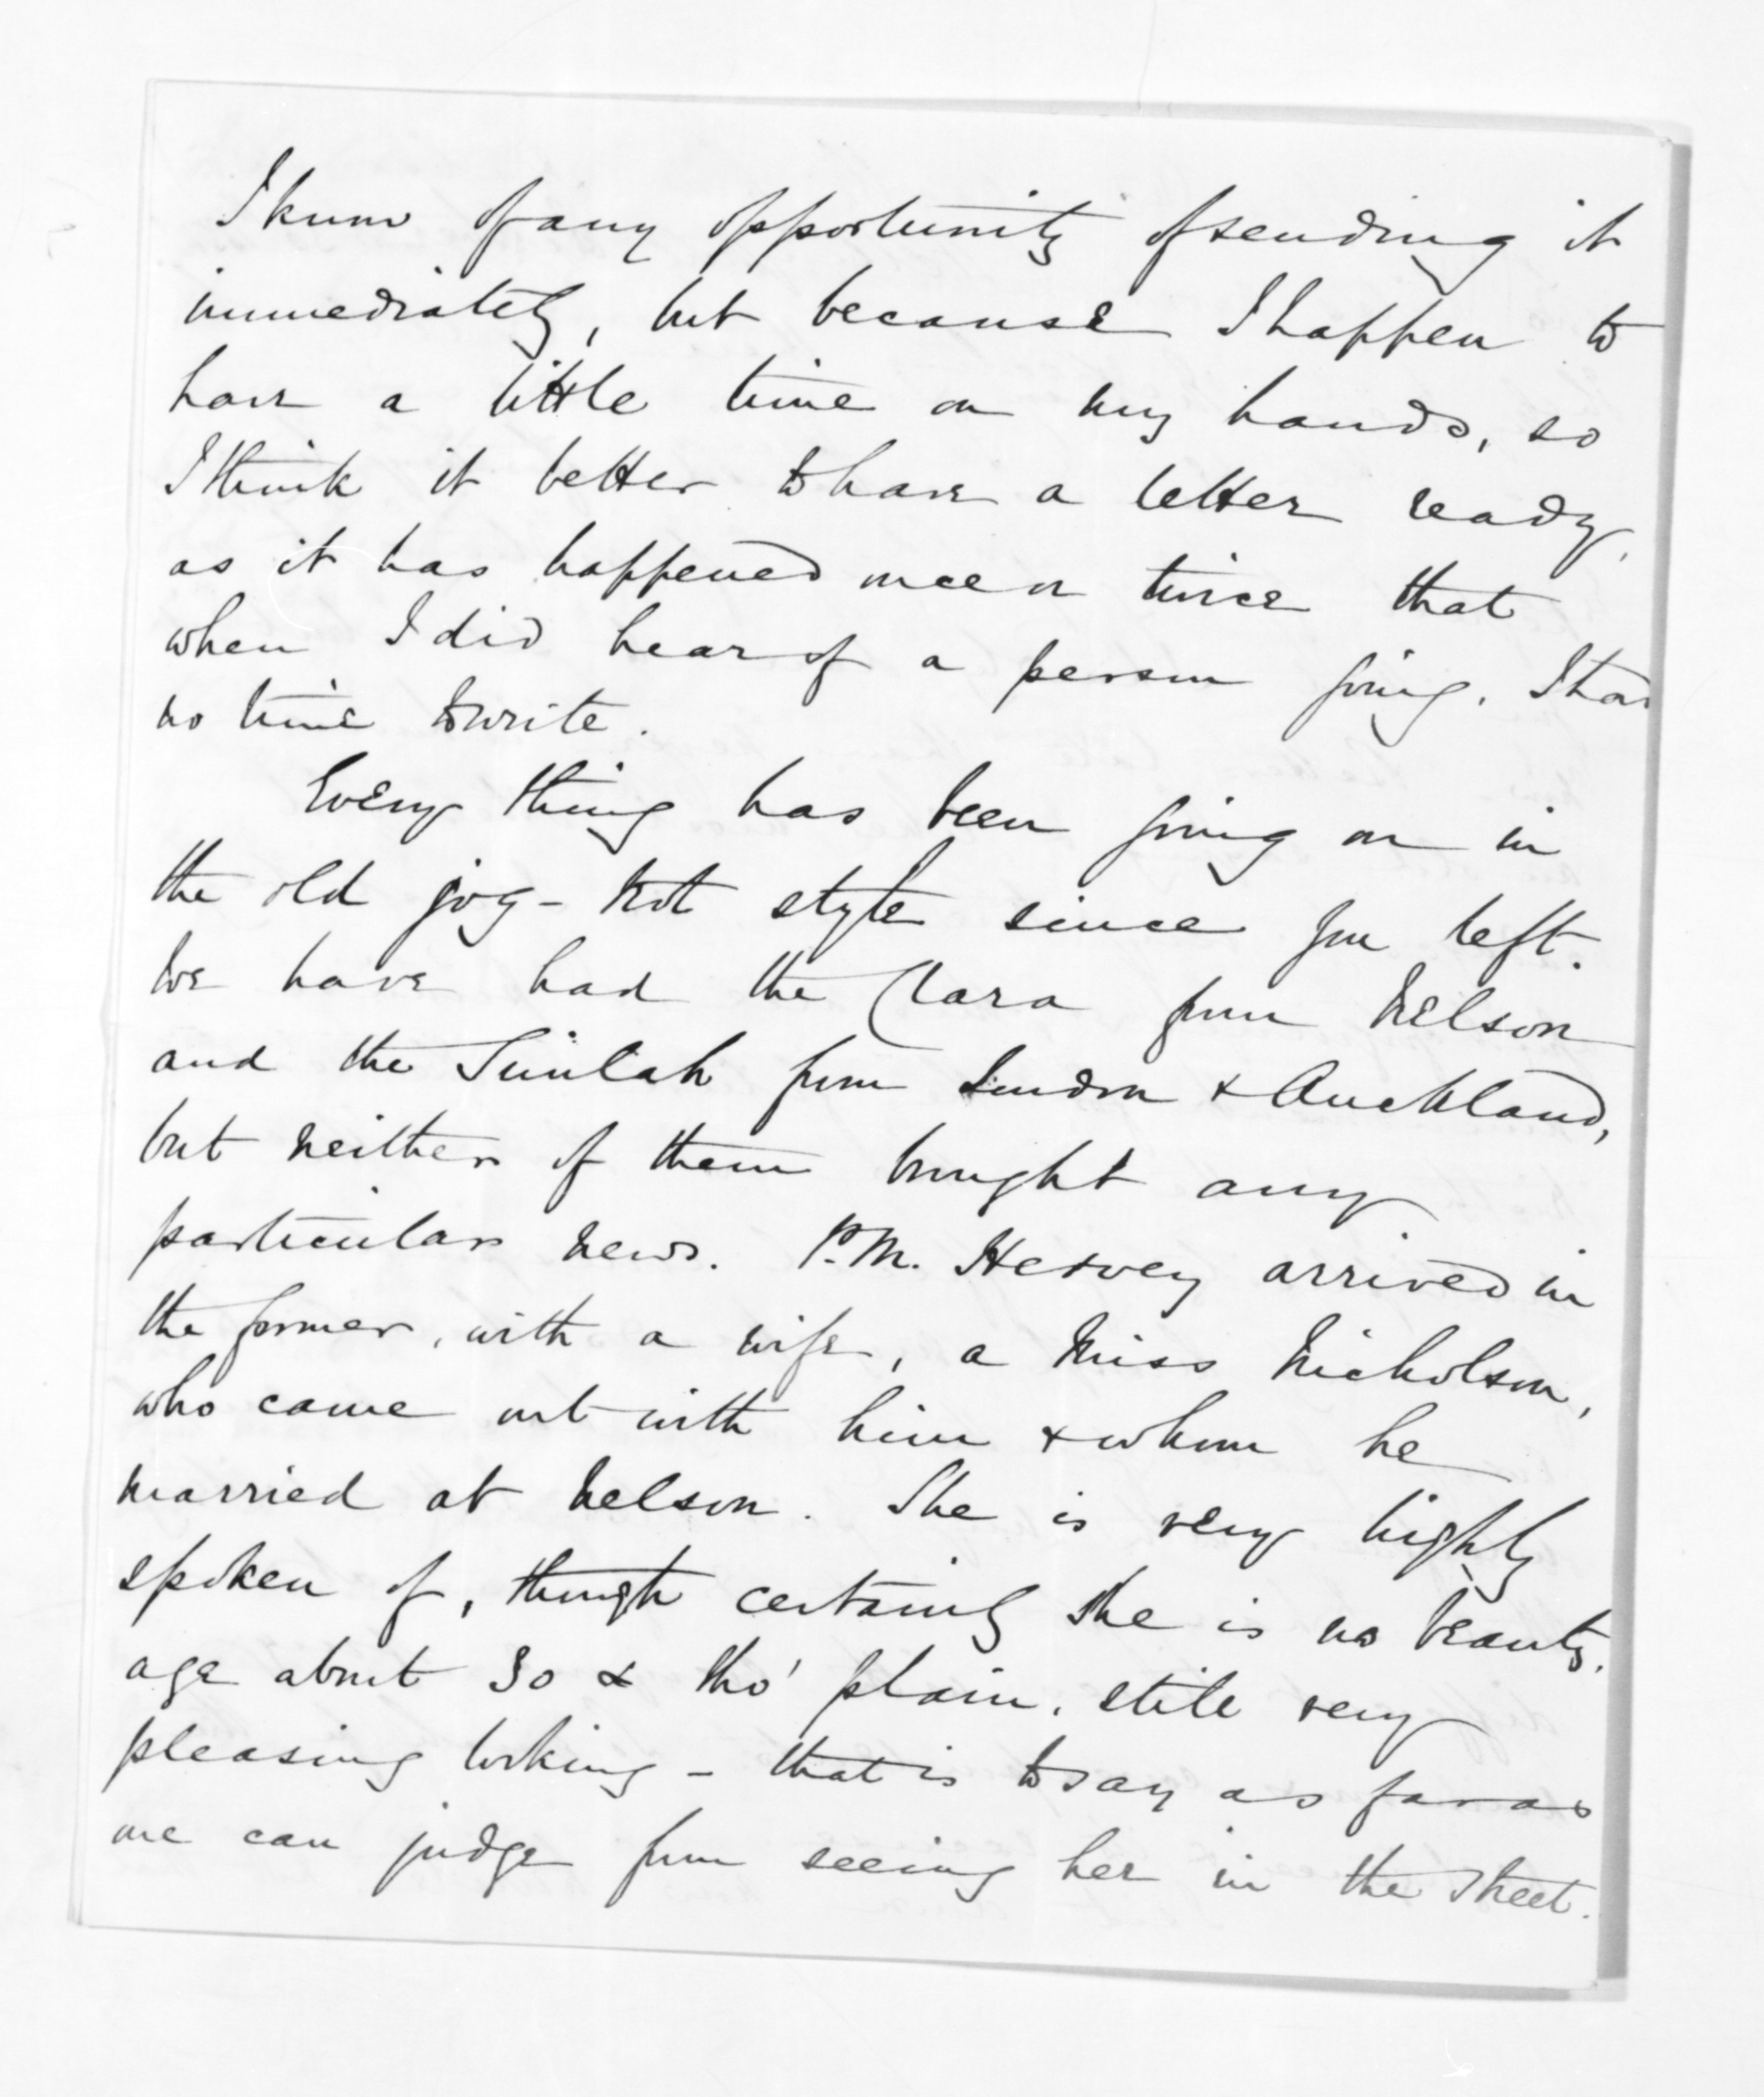 I know of any opportunity of sending it
immediately, but because I happen to
have a little time on my hands, so
I think it better to have a letter ready,
as it has happened once or twice that
when I did hear of a person going, I had
no time to write.
Every thing has been going on in
the old jog-trot style since you left.
We have had the Clara from Nelson
and the from London & Auckland,
but neither of them brought any
particular news. P.M. Hervey arrived in
the former, with a wife, a Miss Nicholson,
who came out with him & whom he
married at Nelson. She is very highly
spoken of, though certainly she is no beauty.
age about 30 & tho' plain, still very
pleasing looking - that is to say as far as
one can judge from seeing her in the street.